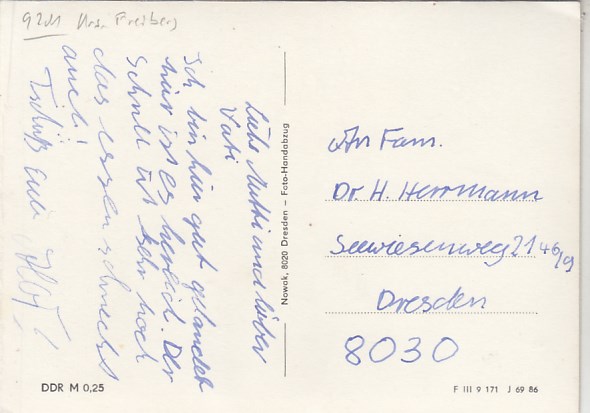 9201 Krs. Freiberg
Liebe Mutti und lieber
Vati
Ich bin hier gut gelandet
hier ist es herrlich. Der
Schnee ist sehr hoch
das essen schmeckt
auch!
Tschüß euer
Nowak, 8020 Dresden – Foto-Handabzug
An Fam.
Dr. H. Herrmann
Seewiesenweg 21 46/9
Dresden
8030
DDR M 0,25
F III 9 171 J 69 86